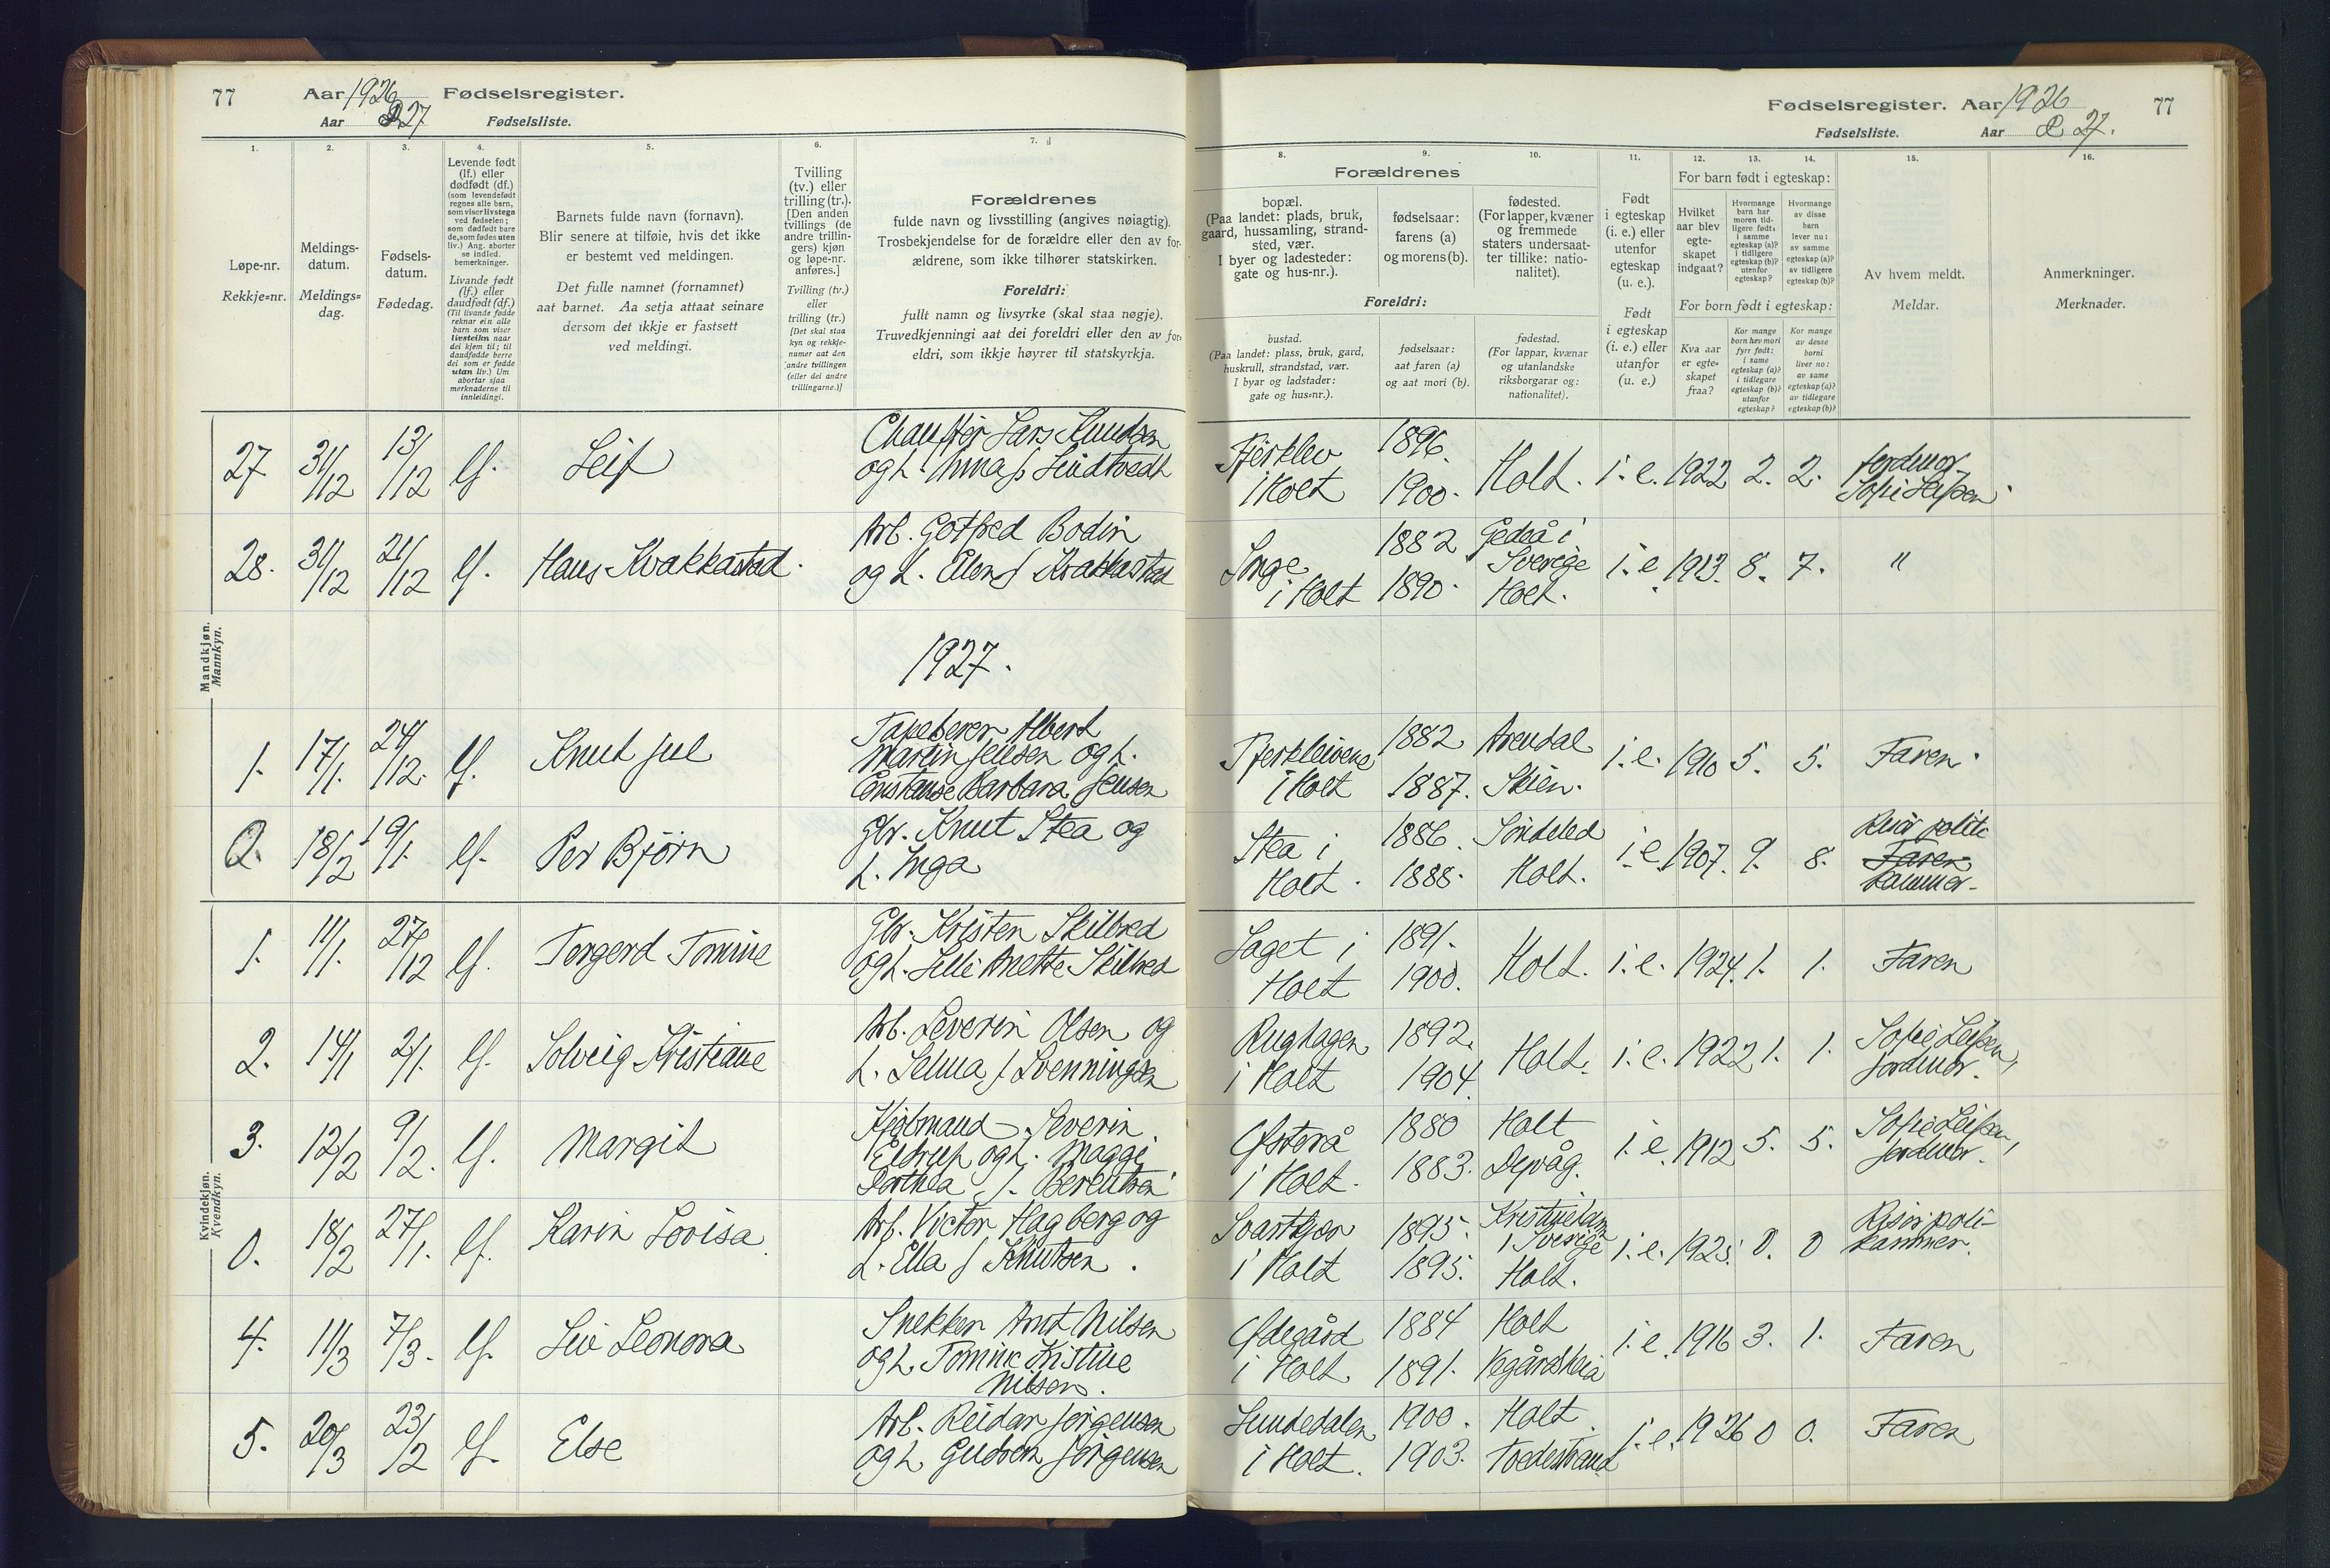 77 Aar 1926 Fødselsregister.
Aar & 27 Fødselsliste.
Fødselsregister. Aar 1926 77
Fødselsliste. Aar & 27.
1.
Løpe-nr.
Rekkje=nr.
2.
Meldings-
datum.
Meldings=
dag.
3.
Fødsels-
datum.
Fødedag.
4.
Levende født
(lf.) eller
dødfødt (df.)
(som levendefødt
regnes alle barn,
som viser livstegn
ved fødselen;
som dødfødt bare
de, som fødes uten
liv.) Ang. aborter
se indled.
bemerkninger.
Livande født
(lf.) eller
daudfødt (df.)
(Til livande fødde
reknar ein alle
barn som viser
livsteikn naar
dei kjem til; til
daudfødde berre
dei som er fødde
utan liv.) Um
abortar sjaa
merknaderne til
innleidingi.
5.
Barnets fulde navn (fornavn).
Blir senere at tilføie, hvis det ikke
er bestemt ved meldingen.
Det fulle namnet (fornamnet)
aat barnet. Aa setja attaat seinare
dersom det ikkje er fastsett
ved meldingi.
6.
Tvilling
(tv.) eller
trilling (tr.).
[Den anden
tvillings (de
andre trillin-
gers) kjøn
og løpe-nr.
anføres.]
Tvilling (tv.)
eller
trilling (tr.)
[Det skal staa
kyn og rekkje-
numer aat den
andre tvillingen
(eller dei andre
trillingarne.)]
7.
Forældrenes
fulde navn og livsstilling (angives nøiagtig).
Trosbekjendelse for de forældre eller den av for-
ældrene, som ikke tilhører statskirken.
Foreldri:
fullt namn og livsyrke (skal staa nøgje).
Truvedkjenningi aat dei foreldri eller den av for-
eldri, som ikkje høyrer til statskyrkja.
8.
Forældrenes
bopæl.
(Paa landet: plads, bruk,
gaard, hussamling, strand-
sted, vær.
I byer og ladesteder:
gate og hus-nr.).
Foreldri:
bustad.
(Paa landet: plass, bruk, gard,
huskrull, strandstad, vær.
I byar og ladstader:
gate og hus=nr.).
9.
fødselsaar:
farens (a)
og morens (b).
fødselsaar:
aat faren (a)
og aat mori (b).
10.
fødested.
(For lapper, kvæner
og fremmede
staters undersaat-
ter tillike: natio-
nalitet).
fødestad.
(For lappar, kvænar
og utanlandske
riksborgarar og:
nationalitet).
11.
Født
i egteskap
(i. e.) eller
utenfor
egteskap
(u. e.).
Født
i egteskap
(i. e.) eller
utanfor
(u. e.)
12. 13. 14.
For barn født i egteskap:
Hvilket
aar blev
egte-
skapet
indgaat?
Hvormange
barn har
moren tid-
ligere født:
i samme
egteskap (a)?
i tidligere
egteskap (b)?
utenfor
egteskap?
Hvormange
av disse
barn
lever nu:
av samme
egteskap (a)?
av tidligere
egteskap (b)?
For born født i egteskap:
Kva aar
er egte-
skapet
fraa?
Kor mange
born hev mori
fyrr født:
i same
egteskap (a)?
i tidlegare
egteskap (b)?
utanfor
egteskap?
Kor mange
av desse
borni
liver no:
av same
egteskap (a)?
av tidlegare
egteskap (b)?
15.
Av hvem meldt.
Meldar.
16.
Anmerkninger.
Merknader.
Mandkjøn.
Mannkyn.
27 31/12 13/12 lf. Leif
Chauffør Lars Knudsen
og h. Anna f. Lindtvedt
Fjerklev
i Holt
1896.
1900.
Holt. i. e. 1922 2. 2.
jordmor
Sofie Leifsen
28. 31/12 21/12 lf. Hans Kvakkestad.
Arb. Gotfred Bodin
og h. Ellen f. Kvakkestad
Songe
i Holt
1882
1890.
Gedeå i
Sverige
Holt.
i. e. 1913. 8. 7. "
1927.
1. 17/1. 24/12. lf. Knut Jul
Albert
Martin Jensen og h.
Constanse Barbara Jensen
Fjerkleivene
i Holt
1882
1887.
Arendal
Skien.
i. e. 1910 5. 5. Faren.
2. 18/2 19/1. lf. Per Bjørn
Gbr. Knut Stea og
h. Inga
Stea i
Holt.
1886.
1888.
Søndeled
Holt.
i. e. 1907. 9. 8.
Risør politi
Faren
kammer.
Kvindekjøn.
Kvendkyn.
1. 11/1. 27/12 lf. Torgerd Tomine
Gbr. Kristen Skilbred
og h. Lilli Anette Skilbred
Laget i
Holt
1891.
1900.
Holt. i. e. 1924. 1. 1. Faren
2. 14/1 2/1. lf. Solveig Kristiane
Arb. Severin Olsen og
h. Selma f. Svenningsen
Rughagen
i Holt
1892.
1904.
Holt. i. e. 1922 1. 1.
Sofie Leifsen,
jordmor.
3. 12/2 9/2. lf. Margit
Severin
Eldrup og h. Maggi
Dorthea f. Berentsen
Østerå
i Holt.
1880
1883.
Holt
Dypvåg.
i. e. 1912 5. 5.
Sofie Leifsen,
jordmor.
0. 18/2 27/1. lf. Karin Lovisa
Arb. Victor Hagberg og
h. Ella f. Knutsen.
Svartkjør
i Holt
1895.
1895.
Kristinehamn
i Sverige
Holt.
i. e. 1925. 0. 0
Risør poli-
kammer.
4. 11/3 7/3. lf. Liv Leonora
Snekker Arnt Nilsen
og h. Tomine Kristine
Nilsen.
Ødegård
i Holt.
1884
1891.
Holt
Vegårdsheia
i. e. 1916 3. 1. Faren
5. 20/3 23/2 lf. Else
Arb. Reidar Jørgensen
og h. Gudrun Jørgensen
Lundedalen
i Holt.
1900.
1903.
Holt.
Tvedestrand
i. e. 1926 0 0. Faren